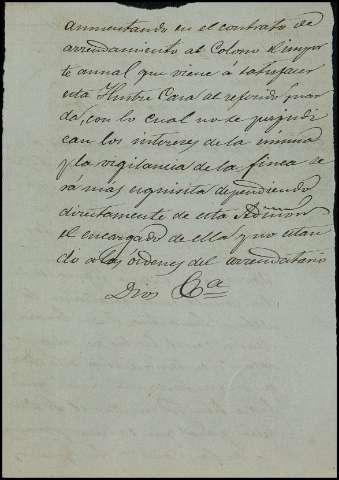 aumentando en el contrato de
arrendamiento al Colono el impor
te anual que viene á satisfacer
esta Ilustre Casa al referido guar
da, con lo cual no se perjudi
can los intereses de la misma
y la vigilancia de la finca se
rá mas esquisita dependiendo
directamente de esta Admón
el encargado de ella y no estan
do a las órdenes del arrendatário
Dios &a